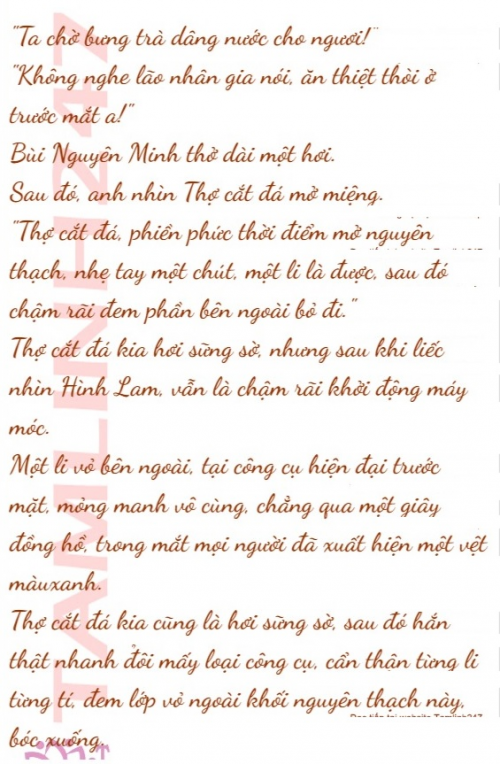 "Ta chờ bưng trà dâng nước cho ngươi!"
"Không nghe lão nhân gia nói, ăn thiệt thòi ở
trước mắt a!"
Bùi Nguyên Minh thở dài một hơi.
Sau đó, anh nhìn Thợ cắt đá mở miệng.
"Thợ cắt đá, phiền phức thời điểm mở nguyên
thạch, nhẹ tay một chút, một li là được, sau đó
chậm rãi đem phần bên ngoài bỏ đi."
Thợ cắt đá kia hơi sững sờ, nhưng sau khi liếc
nhìn Hình Lam, vẫn là chậm rãi khởi động máy
móc.
Một li vỏ bên ngoài, tại công cụ hiện đại trước
mặt, mỏng manh vô cùng, chẳng qua một giây
đồng hồ, trong mắt mọi người đã xuất hiện một vệt
màuxanh.
Thợ cắt đá kia cũng là hơi sững sờ, sau đó hắn
thật nhanh đổi mấy loại công cụ, cẩn thận từng li
từng tí, đem lớp vỏ ngoài khối nguyên thạch này,
bóc xuống.
TAMLINH247